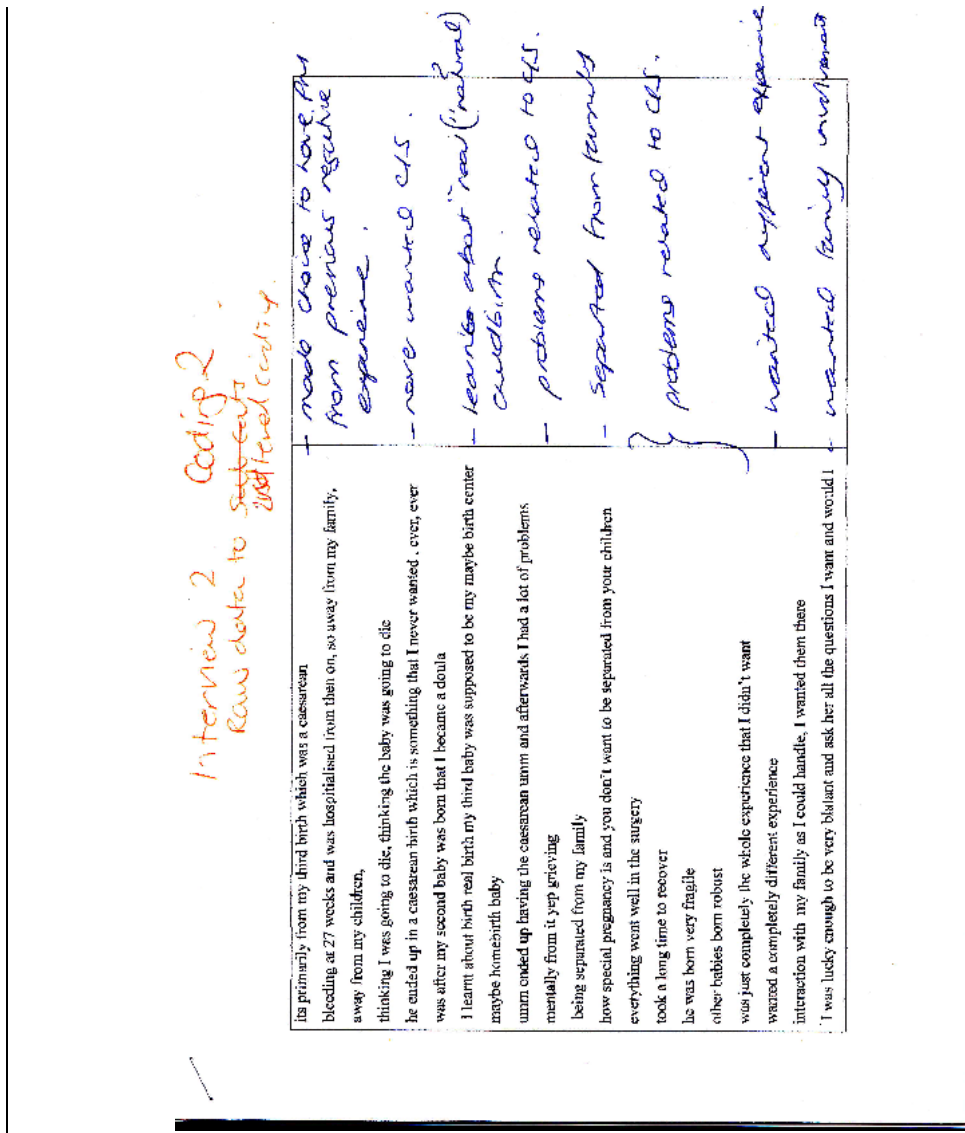 Interview 2 Coding 2
Raw data to sub cats
level coding
its primarily from my third birth which was a caesarean
bleeding at 27 weeks and was hospitialised from then on, so away from my family,
away from my children,
thinking I was going to die, thinking the baby was going to die
he ended up in a caesarean birth which is something that I never wanted , ever, ever
was after my second baby was born that I became a doula
I learnt about birth real birth my third baby was supposed to be my maybe birth center
maybe homebirth baby
umm ended up having the caesarean umm and afterwards I had a lot of problems
mentally from it yep grieving
being separated from my family
how special pregnancy is and you don't want to be separated from your children
everything went well in the surgery
took a long time to recover
he was born very fragile
other babies born robust
was just completely the whole experience that I didn't want
wanted a completely different experience
interaction with my family as I could handle, I wanted them there
I was lucky enough to be very blatant and ask her all the questions I want and would I
- made choice to have PM
from previous negative
experience.
- never wanted C/S.
- learnt about "real ("natural)
childbirth
- problems related to C/S.
- Separated from family
problems related to C/S.
- wanted different experience
- wanted family involvement